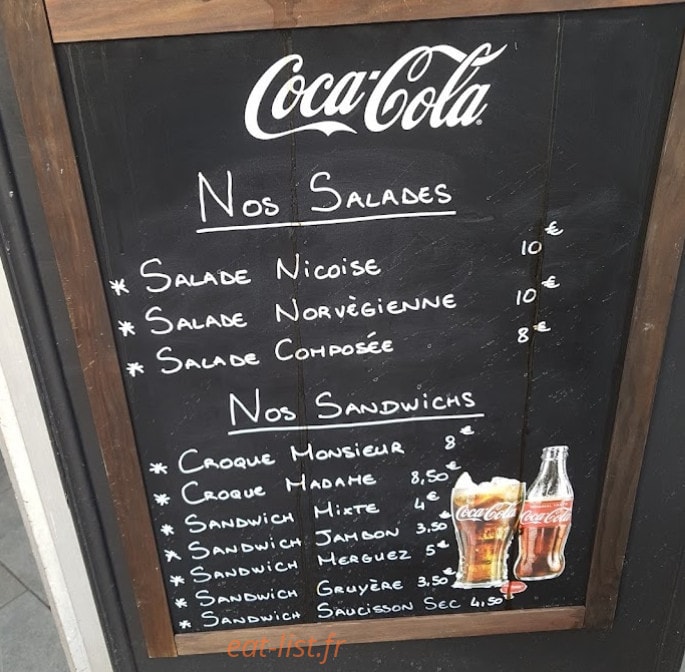 Coca-Cola
NOS SALADES
* SALADE NICOISE 10€
* SALADE NORVÈGIENNE 10€
* SALADE COMPOSÉE 8€
NOS SANDWICHS
* CROQUE MONSIEUR 8€
* CROQUE MADAME 8,50€
* SANDWICH MIXTE 4€
* SANDWICH JAMBON 3,50€
* SANDWICH MERGUEZ 5€
* SANDWICH GRUYÈRE 3,50€
* SANDWICH SAUCISSON SEC 4,50€
Coca-Cola
Coca-Cola
eat-list.fr